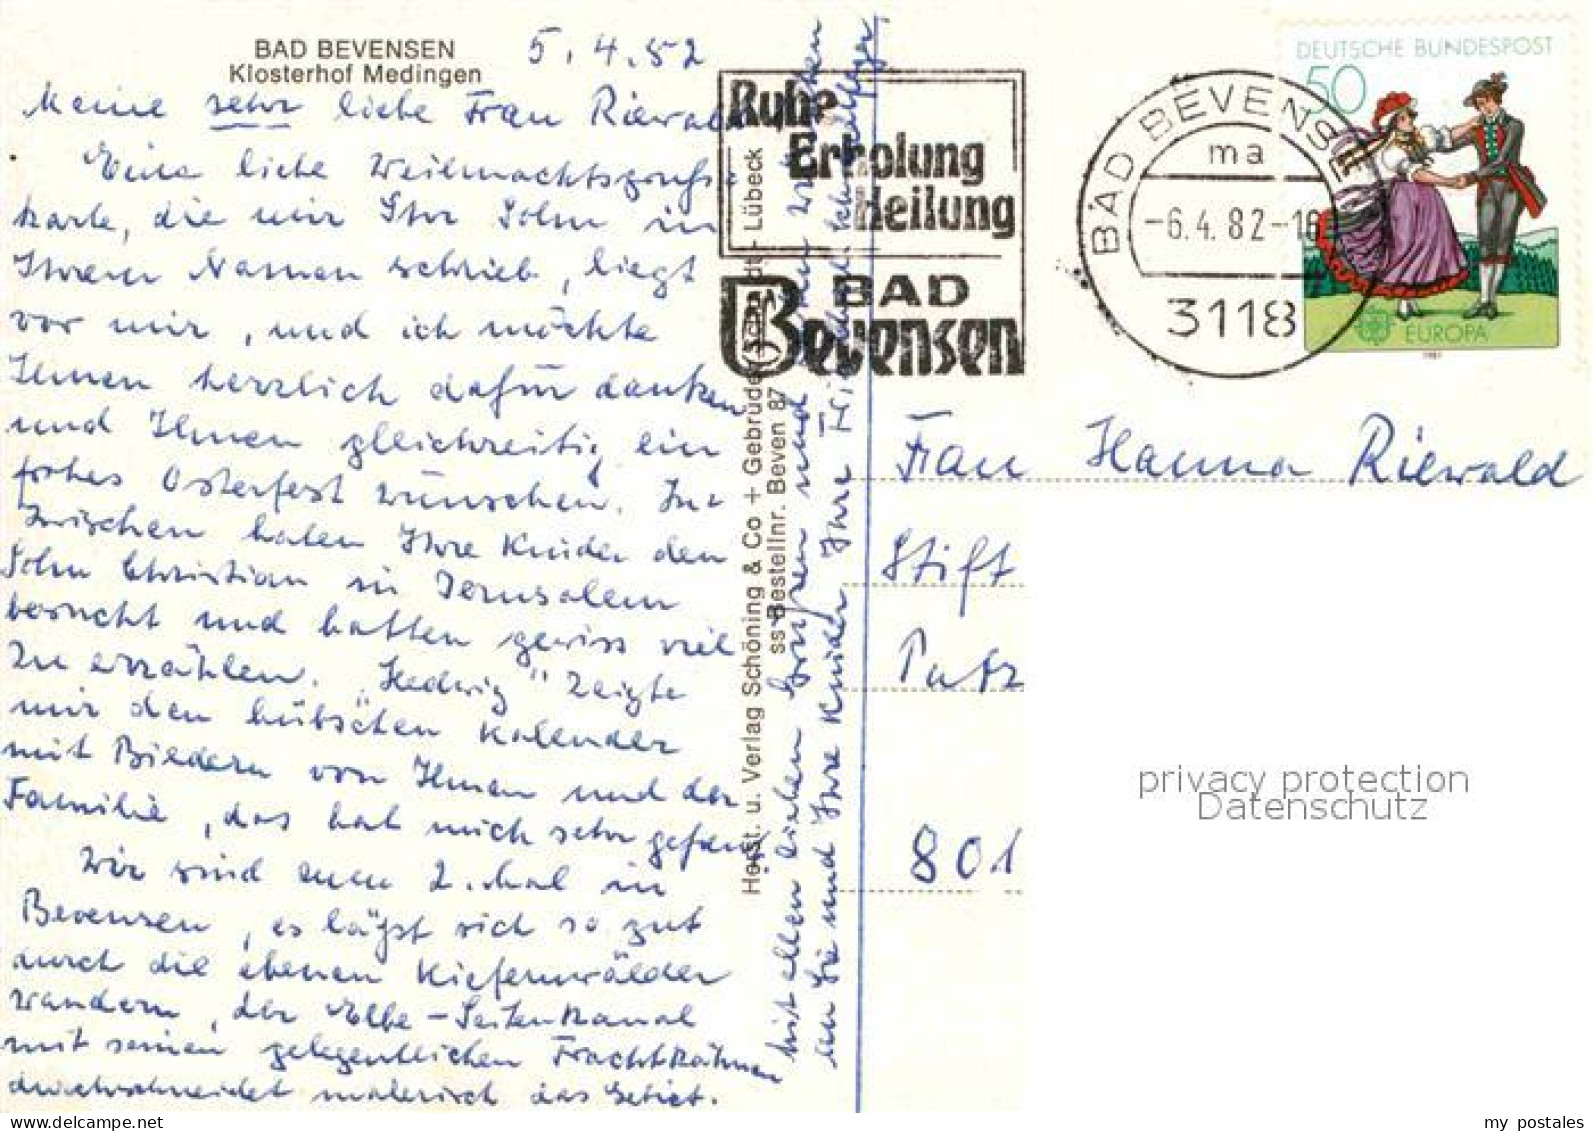 BAD BEVENSEN
Klosterhof Medingen
5.4.82
Meine sehr liebe Frau Riewald,
Eine liebe Weihnachtsgruß-
karte, die mir Ihr Sohn in
Ihrem Namen schrieb, liegt
vor mir, und ich möchte
Ihnen herzlich dafür danken
und Ihnen gleichzeitig ein
frohes Osterfest wünschen. In-
zwischen haben Ihre Kinder den
Sohn Christian in Jerusalem
besucht und hatten gewiss viel
zu erzählen. "Hedwig" zeigte
mir den hübschen Kalender
mit Bildern von Ihnen und der
Familie, das hat mich sehr gefreut.
Wir sind zum 2. Mal in
Bevensen, es läßt sich so gut
durch die ebenen Kiefernwälder
wandern, der Elbe-Seitenkanal
mit seinen gelegentlichen Frachtkähnen
durchschneidet malerisch das Gebiet.
Mit allen lieben Grüßen und
an Sie und Ihre Kinder Ihre
Herst. u. Verlag Schöning & Co + Gebrüder Schmidt - Lübeck
ss Bestellnr. Beven 87
Ruhe
Erholung
Heilung
BAD
Bevensen
BAD BEVENSEN
ma
-6.4.82-18
3118
DEUTSCHE BUNDESPOST
50
EUROPA
1981
Frau Hanna Riewald
Stift
801
privacy protection
Datenschutz
my postales